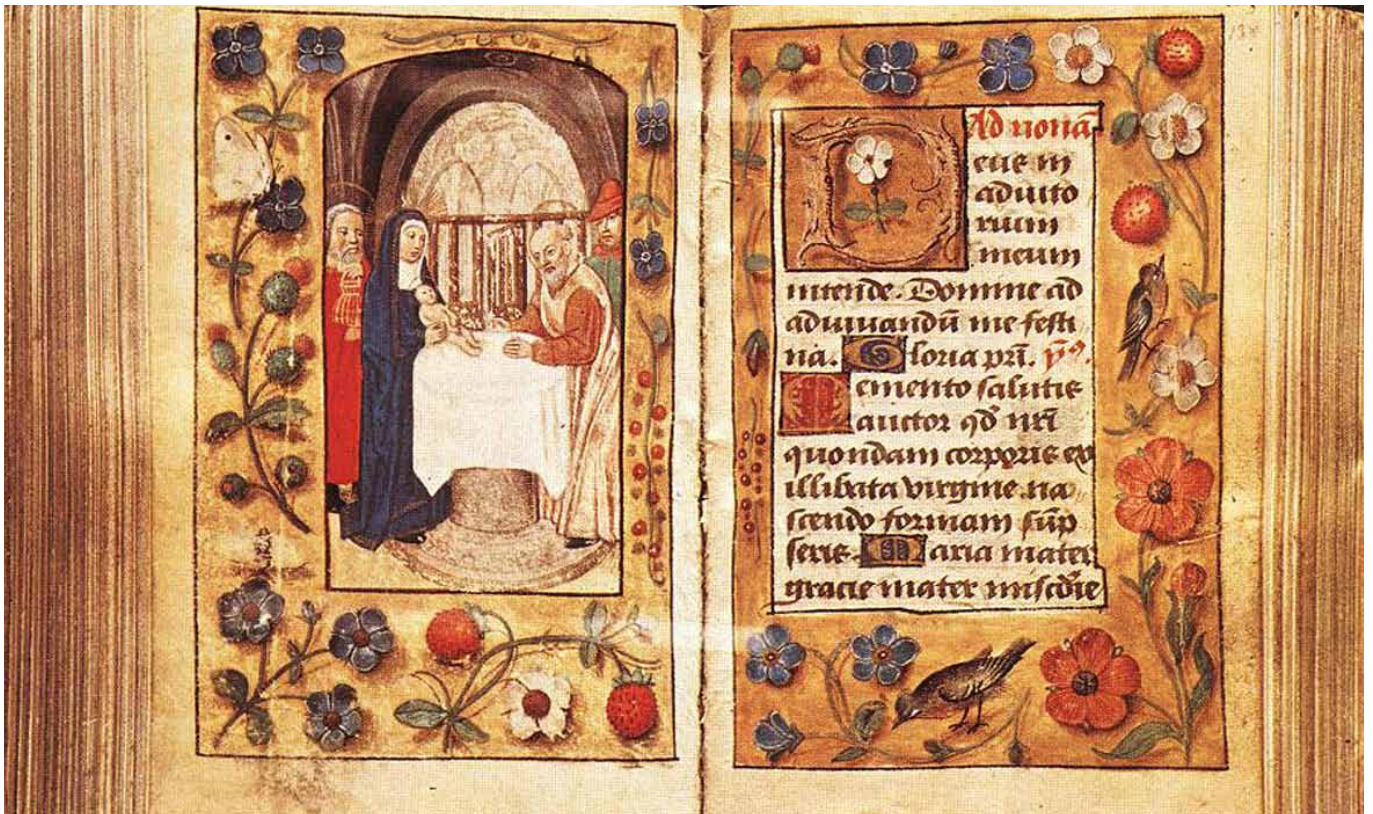 Ad nonā
Deus in
adiuto
rium
meum
intende. Domine ad
adiuuandū me festi
na. Gloria pr̄i. ps̄.
Memento salutis
auctor qd̄ nr̄i
quondam corporis ex
illibata virgine na
scendo formam sūp
seris. Maria mater
gracie mater mis̄cdīe